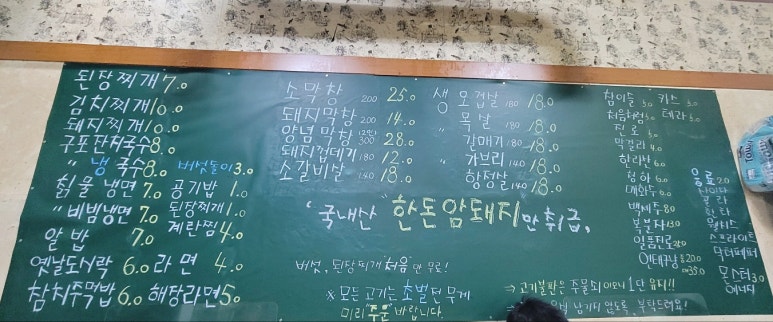 된장찌개 7.0
김치찌개 10.0
돼지찌개 10.0
구포잔치국수 8.0
" 냉 국수 8.0 버섯돌이 3.0
칡 물 냉면 7.0 공기밥 1.0
" 비빔냉면 7.0 된장찌개 1.0
알 밥 7.0 계란찜 4.0
옛날도시락 6.0 라 면 4.0
참치주먹밥 6.0 해장라면 5.0
소막창 200 25.0
돼지막창 200 14.0
양념 막창 300 28.0
돼지껍데기 180 12.0
소갈비살 140 18.0
생 오겹살 180 18.0
" 목 살 180 18.0
갈매기 180 18.0
" 가브리 140 18.0
항정살 140 18.0
"국내산" 한돈 암돼지만 취급.
버섯, 된장찌개 "처음"만 무료!
※ 모든 고기는 초벌 전 무게
미리 "주문" 바랍니다.
참이슬 5.0 카스
테라
진로
막걸리 4.0
한라산
청하 6.0
매화수
백세주 8.0
복분자 13.0
일품진로
연태구냥 小20.0
35.0
음료 2.0
사이다
콜라
환타
웰치스
스프라이트
닥터페퍼
몬스터 3.0
에너지
⇒ 고기불판은 주물식 이오니 1단 유지!!
남기지 않도록 부탁드려요!